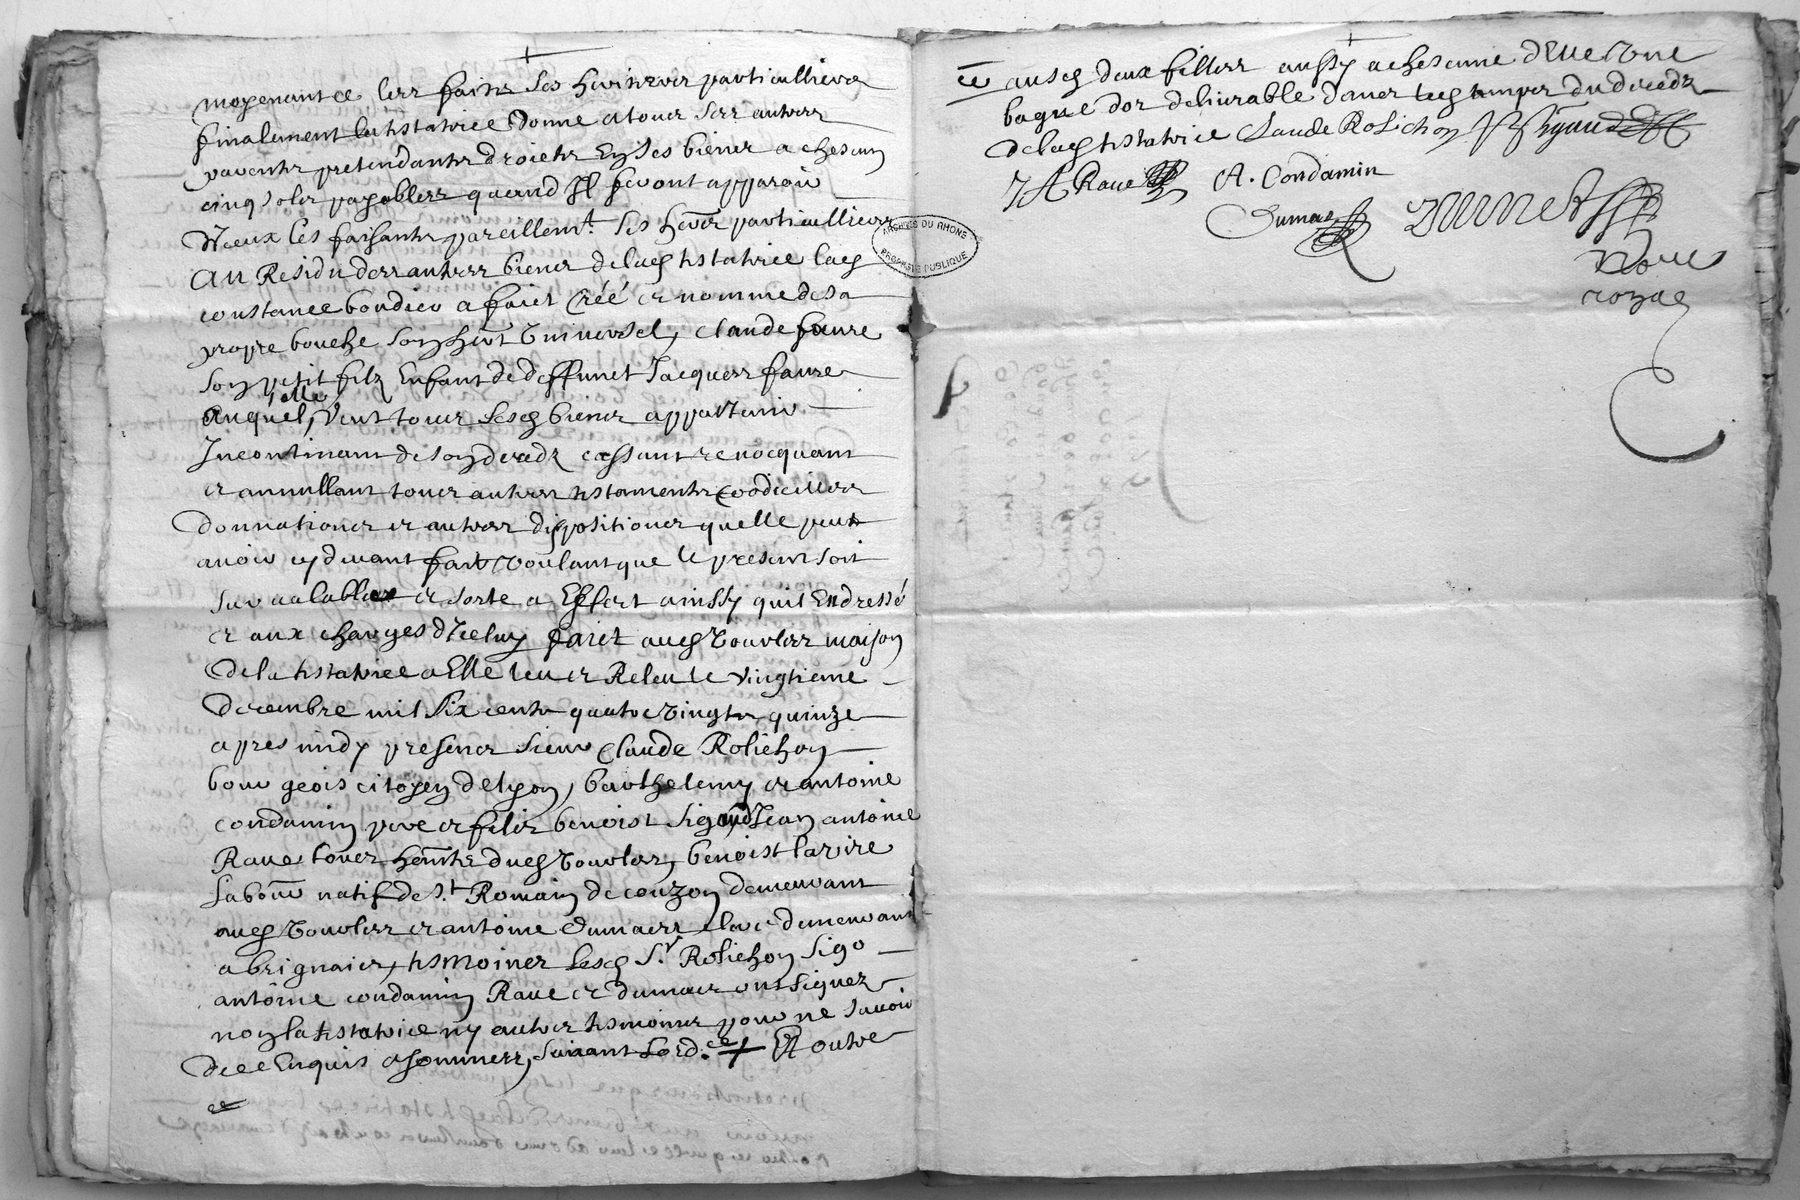 moyenant ce les faits ses heritieres particullieres
finalement la testatrice donne a tous ses autres
parents pretendants droicts En ses biens a chescun
cinq solz payables quand Il feront apparoir
d'Iceux les faisants pareillemt. ses heres particulliers
Au Residu des autres biens de lad testatrice lad
constance bondieu a faict Créé et nomme de sa
propre bouche son hert Universel, claude faure
son petit filz Enfant de deffunct Jacques faure
Auquel elle Veut tous sesd biens appartenir
Incontinant de son decedz cassant revocquant
et annullant tous autres testaments Codicilles
donnations et autres dispositions quelle peut
avoir cy devant fait Voulant que le present soit
seur valable et sorte a Effect ainssy quil En dressé
et aux charges d'Iceluy faict aud Tourles maison
de la testatrice a Elle leu et Releu le vingtieme
decembre mil Six cents quatre Vingts quinze
apres midy presence sieur Claude Rolichon
bourgeois citoyen de lyon, barthelemy et antoine
condamin pere et filz benoist Sigaud Jean antoine
Rave tous habitts dud Tourles, benoist lavire
labour natif de St Romain de couzon demeurant
aud Tourles et antoine dumas clerc demeurant
a brignais, tesmoins lesd Sr. Rolichon Sigd
antoine condamin Rave et dumas ont signez
non la testatrice ny autres tesmoins pour ne sçavoir
de ce Enquis & sommez, suivant Lord.ce + Et outre
ce
ce ausd deux filles aussy a chescune d'Elle Une
bague dor delivrable d'avec lesd du decedz
de lad testatrice Claude Rolichon Sigaud
JA Rave A. Condamin
Dumas
Nore
royal
ARCHIVES DU RHONE
PROPRIETE PUBLIQUE